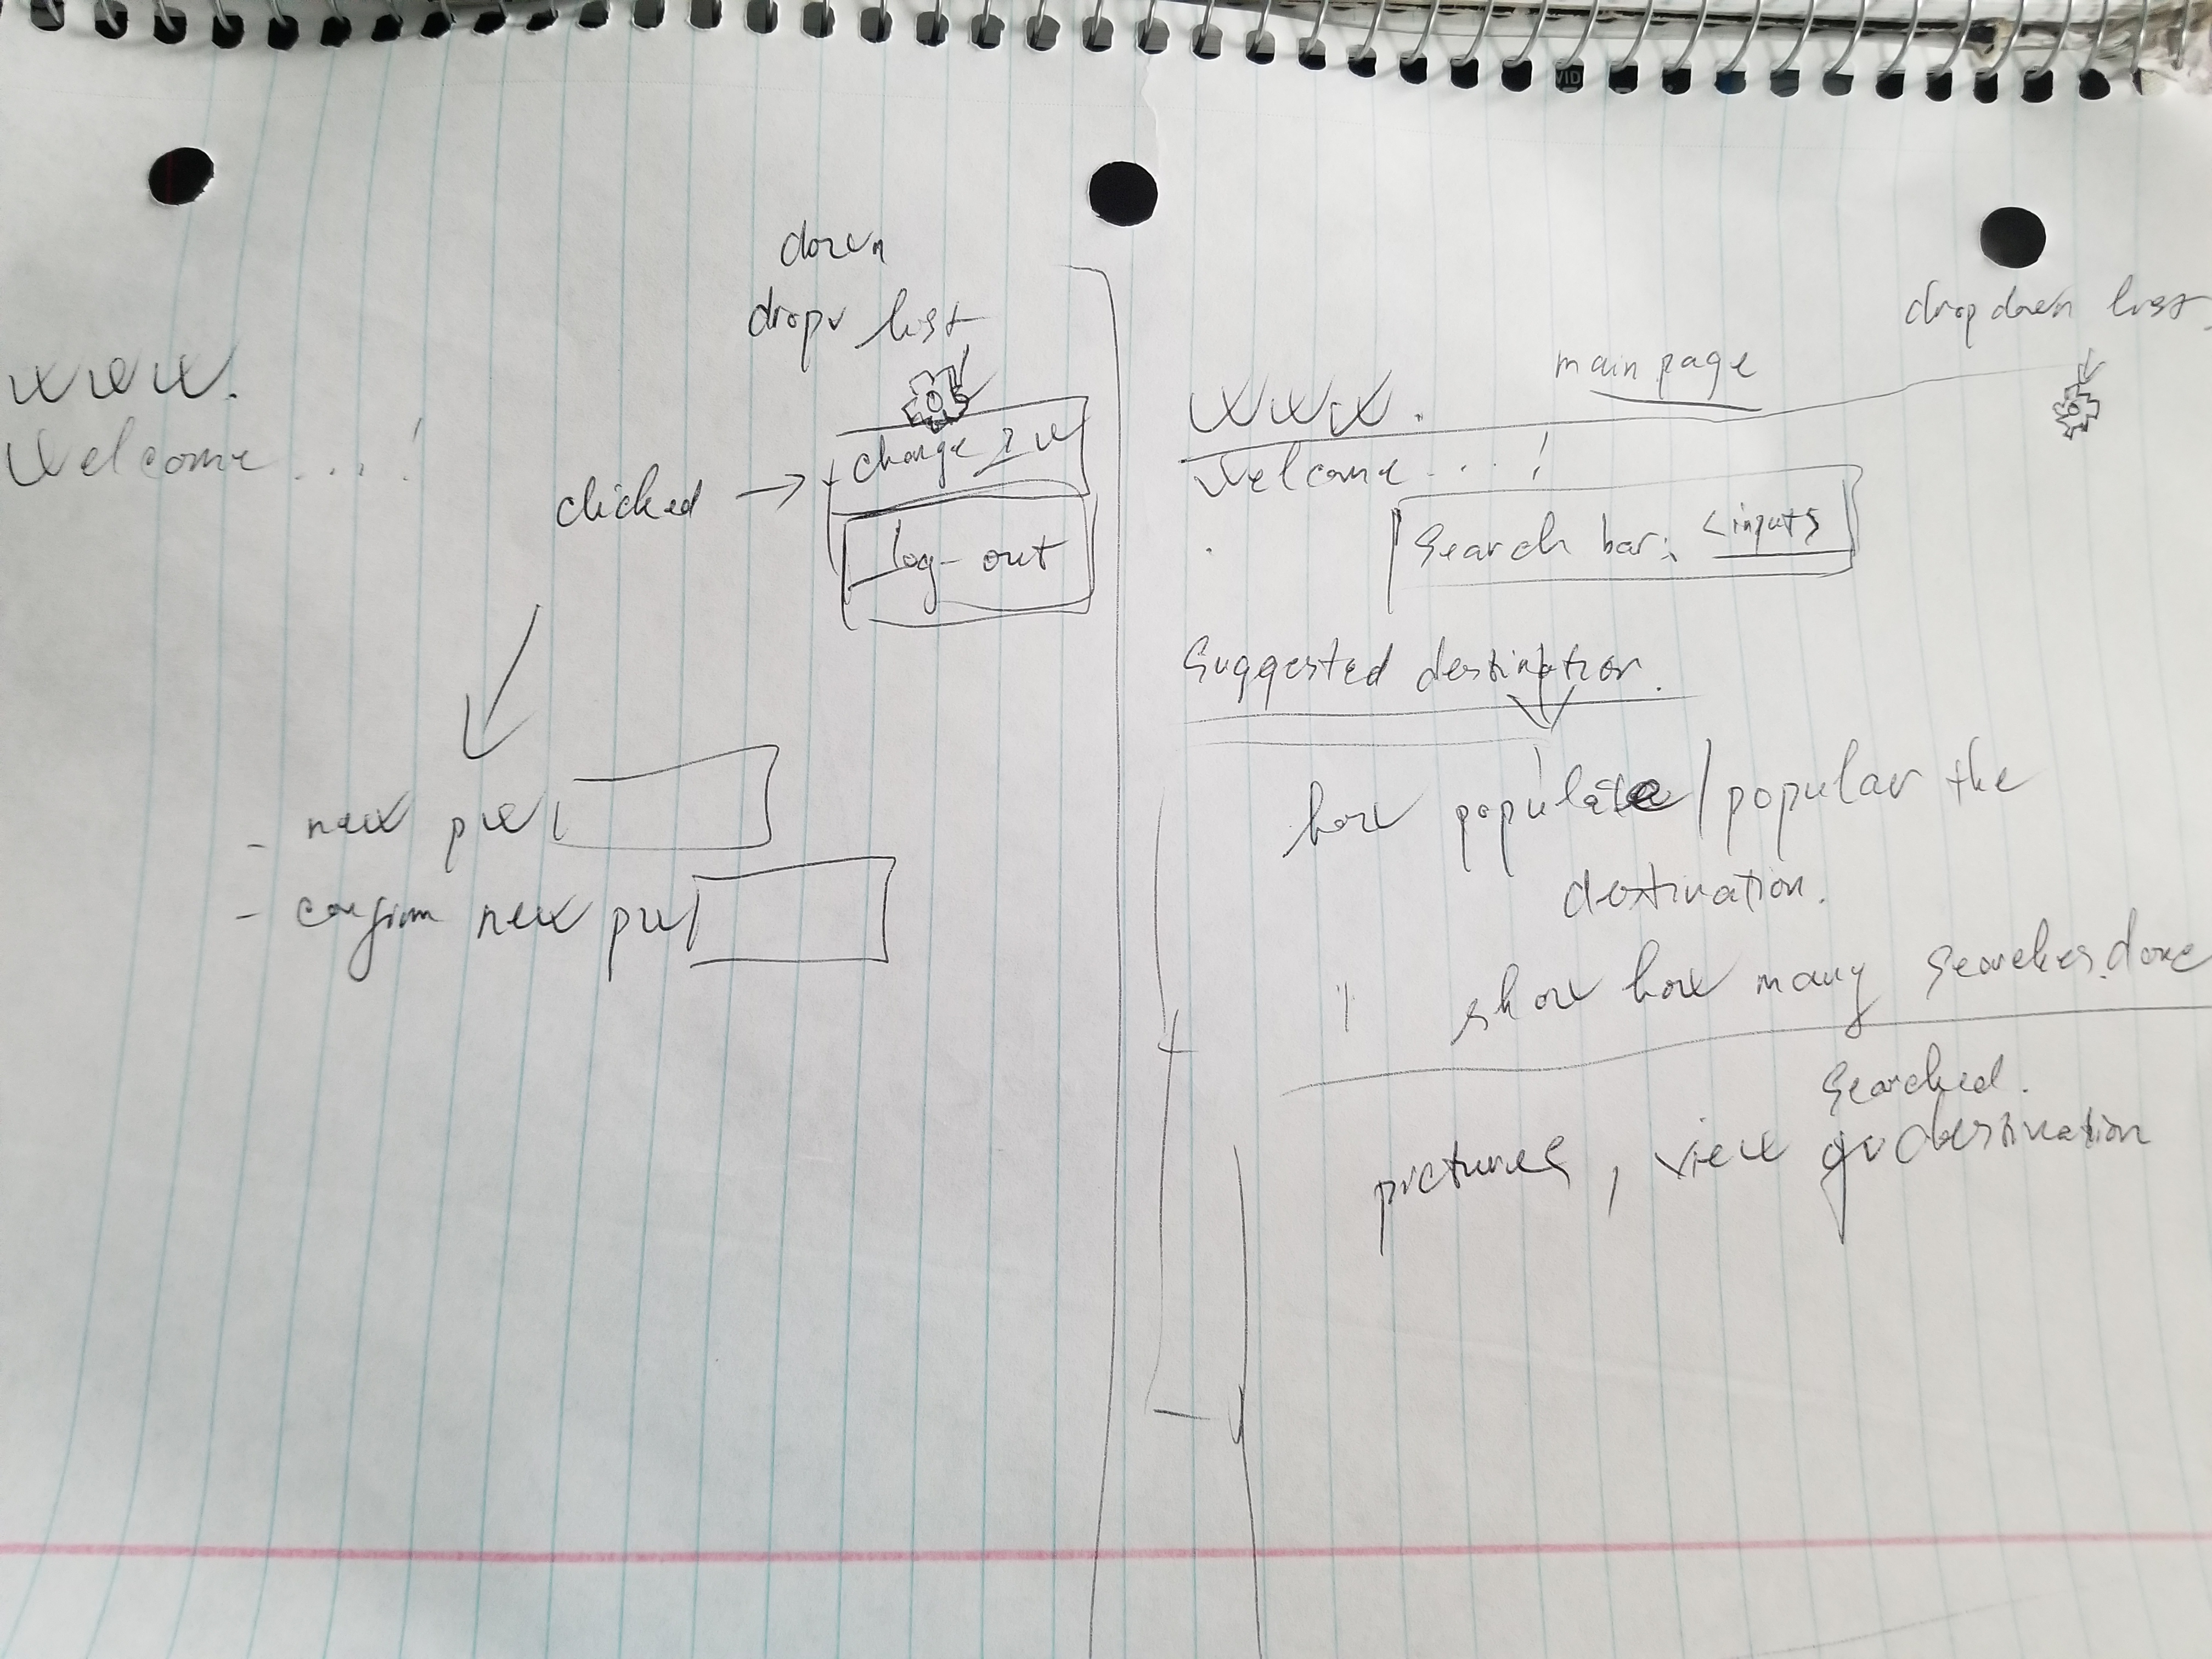 down
drop list
www.
Welcome...!
change pw
clicked →
log-out
- new pw
- confirm new pw
drop down list
main page
www.
Welcome...!
Search bar: <inputs
Suggested destination.
how populate/popular the
destination.
show how many searches done
searched.
pictures, view of destination